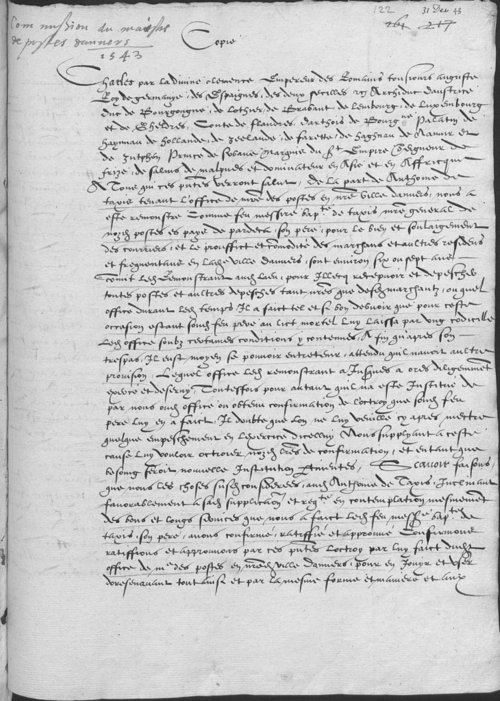 Commission du maistre
de postes danvers
1543
122
31 Dec 43
217
Copie
Charles par la divine clemence Empereur des Romains tousiours auguste
Roy de germanye, des Espaignes, des deux secilles &c Archiduc daustrice
duc de Bourgoigne, de Lothier, de Brabant, de Lembourg, de Luxembourg
et de Gheldres, Conte de flandres, darthois, de Bourgne Palatin de
Haynnau, de Hollande, de Zeelande, de ferette, de Haghnau, de Namur et
de Zutphen, Prince de Zwave, Marquis du St Empire, Seigneur de
frize, de salins, de malines, et dominateur en Asie et en Affricque
A Tous qui ces pntes verront salut, De la part de Anthoine de
taxis tenant loffice de mre des postes en nre ville danvers, nous a
este remonstre Comme feu messire Bapte de taxis, mre general de
noz postes es pays de pardeca, son pere, pour le bien et soulaigement
des courriers, et le prouffict et commodite des marchans et aultres residens
et frequentans en ladite ville danvers, soit environ six ou sept ans
commit led Remonstrant aud lieu, pour illecq recepvoir et depescher
toutes postes et aultres depesches tant nres que desd marchans, ou quel
office durant led temps Il a faict tel et si bon debvoir que pour ceste
occasion estant sond feu pere au lict mortel luy laissa par ung codicille
led office soubz certaines conditions y contenues, A fin qu apres son
trespas, Il eust moyen se pouvoir entretenir, attendu quil navoit aultre
provision, Lequel office led remonstrant a Jusques a ores diligemment
exerce et desservy, Touteffois pour autant quil na este Institue de
par nous oud office ou obtenu confirmation de loctroy que sond feu
pere luy en a faict, Il doubte que lon ne luy veuille cy apres mettre
quelque empeschement en lexercice dicelluy, Nous suppliant a ceste
cause luy vouloir octroier noz lres de confirmation, et en tant que
besoing seroit nouvelle Institution pertinentes, Scavoir faisons
que nous les choses susd considerees, aud Anthoine de Taxis, Inclinant
favorablement a sad supplicacion et reqte en contemplation mesmement
des bons et longs services que nous a faict led feu messe Bapte de
taxis, son pere, avons confirme, ratiffie et approuve Confirmons
ratiffions et approuvons par ces pntes loctroy par luy faict dudt
office de mre des postes en nred ville danvers, pour en Jouyr et user
doresenavant tout ainsi et par la mesme forme et maniere et aux